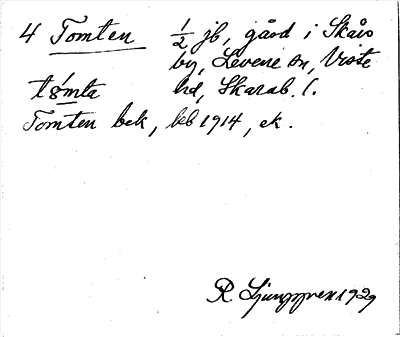 4 Tomten 1/2 jb, gård i Skårs
by, Levene sn, Viste
tômta hd, Skarab. l.
Tomten bek, leb 1914, ek.
R. Ljunggren 1929